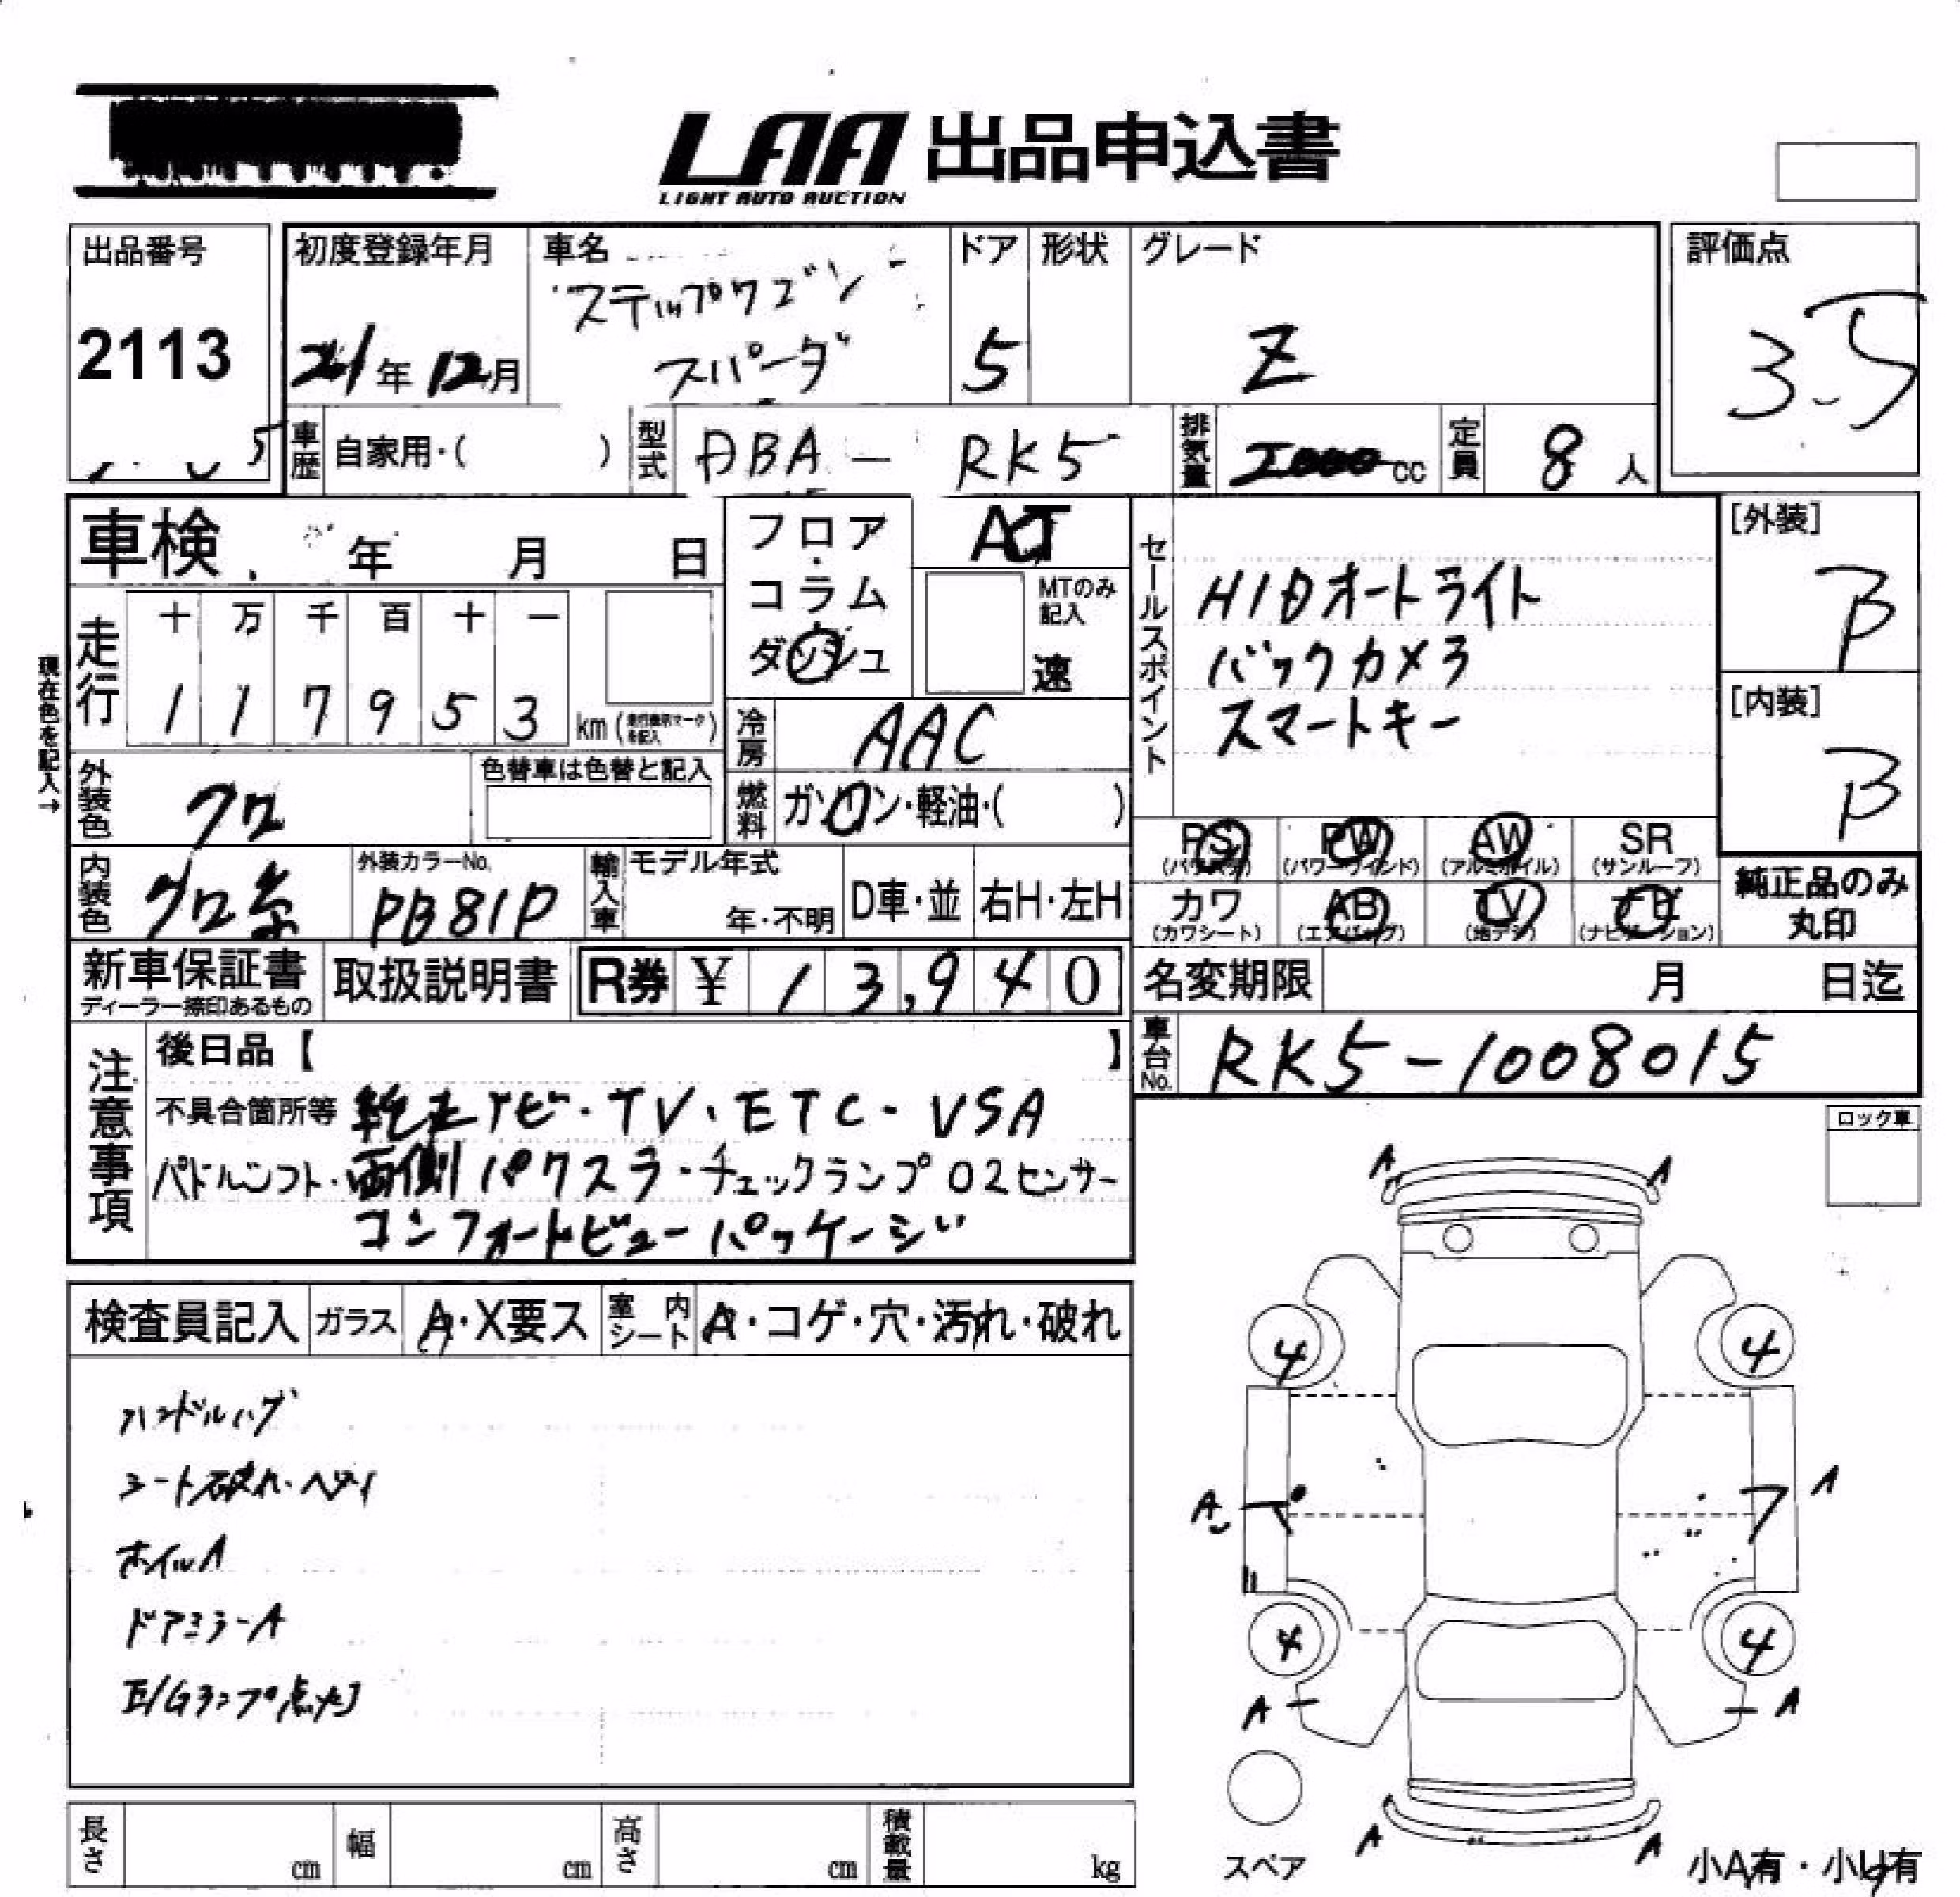 LAA 出品申込書
LIGHT AUTO AUCTION
出品番号
2113
初度登録年月
21年12月
車名
ステップワゴン
スパーダ
ドア
5
形状
グレード
Z
評価点
3.5
車歴 自家用・( )
型式 DBA - RK5
排気量 2000 cc
定員 8 人
車検 年 月 日
フロア・コラム・ダッシュ
AT
MTのみ記入
速
走行
十 万 千 百 十 一
1 1 7 9 5 3
km (走行表示マークを記入)
現在色を記入→
冷房 AAC
燃料 ガソリン・軽油・( )
外装色 クロ
色替車は色替と記入
内装色 クロ系
外装カラーNo. PB81P
輸入車 モデル年式 年・不明
D車・並
右H・左H
セールスポイント
HIDオートライト
バックカメラ
スマートキー
[外装]
B
[内装]
B
PS (パワステ) PW (パワーウィンド) AW (アルミホイル) SR (サンルーフ)
カワ (カワシート) AB (エアバッグ) TV (地デジ) ナビ (ナビゲーション)
純正品のみ丸印
新車保証書
ディーラー捺印あるもの
取扱説明書
R券 ¥ 13,940
名変期限 月 日迄
車台No. RK5-1008015
注意事項
後日品【 】
不具合箇所等 純正ナビ・TV・ETC・VSA
パドルシフト・両側パワスラ・チェックランプO2センサー
コンフォートビューパッケージ
ロック車
検査員記入 ガラス A・X要ス 室内シート A・コゲ・穴・汚れ・破れ
ハンドルハゲ
シート破れ・ヘタイ
ホイルA
ドアミラーA
E/Gランプ点灯
A A
4 4
A ア フ A
4 4
A A
A A
スペア
小A有・小U有
長さ cm 幅 cm 高さ cm 積載量 kg